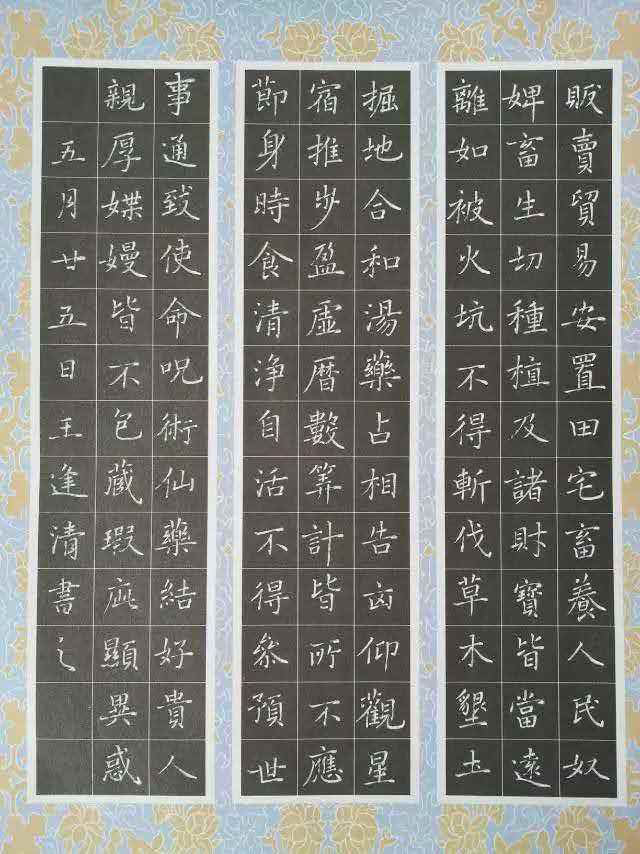 販賣貿易安置田宅畜養人民奴
婢畜生切種植及諸財寶皆當遠
離如被火坑不得斬伐草木墾土
掘地合和湯藥占相告凶仰觀星
宿推步盈虛暦數筭計皆所不應
節身時食清淨自活不得參預世
事通致使命呪術仙藥結好貴人
親厚媟嫚皆不包藏瑕疵顯異惑
五月廿五日王逢清書之